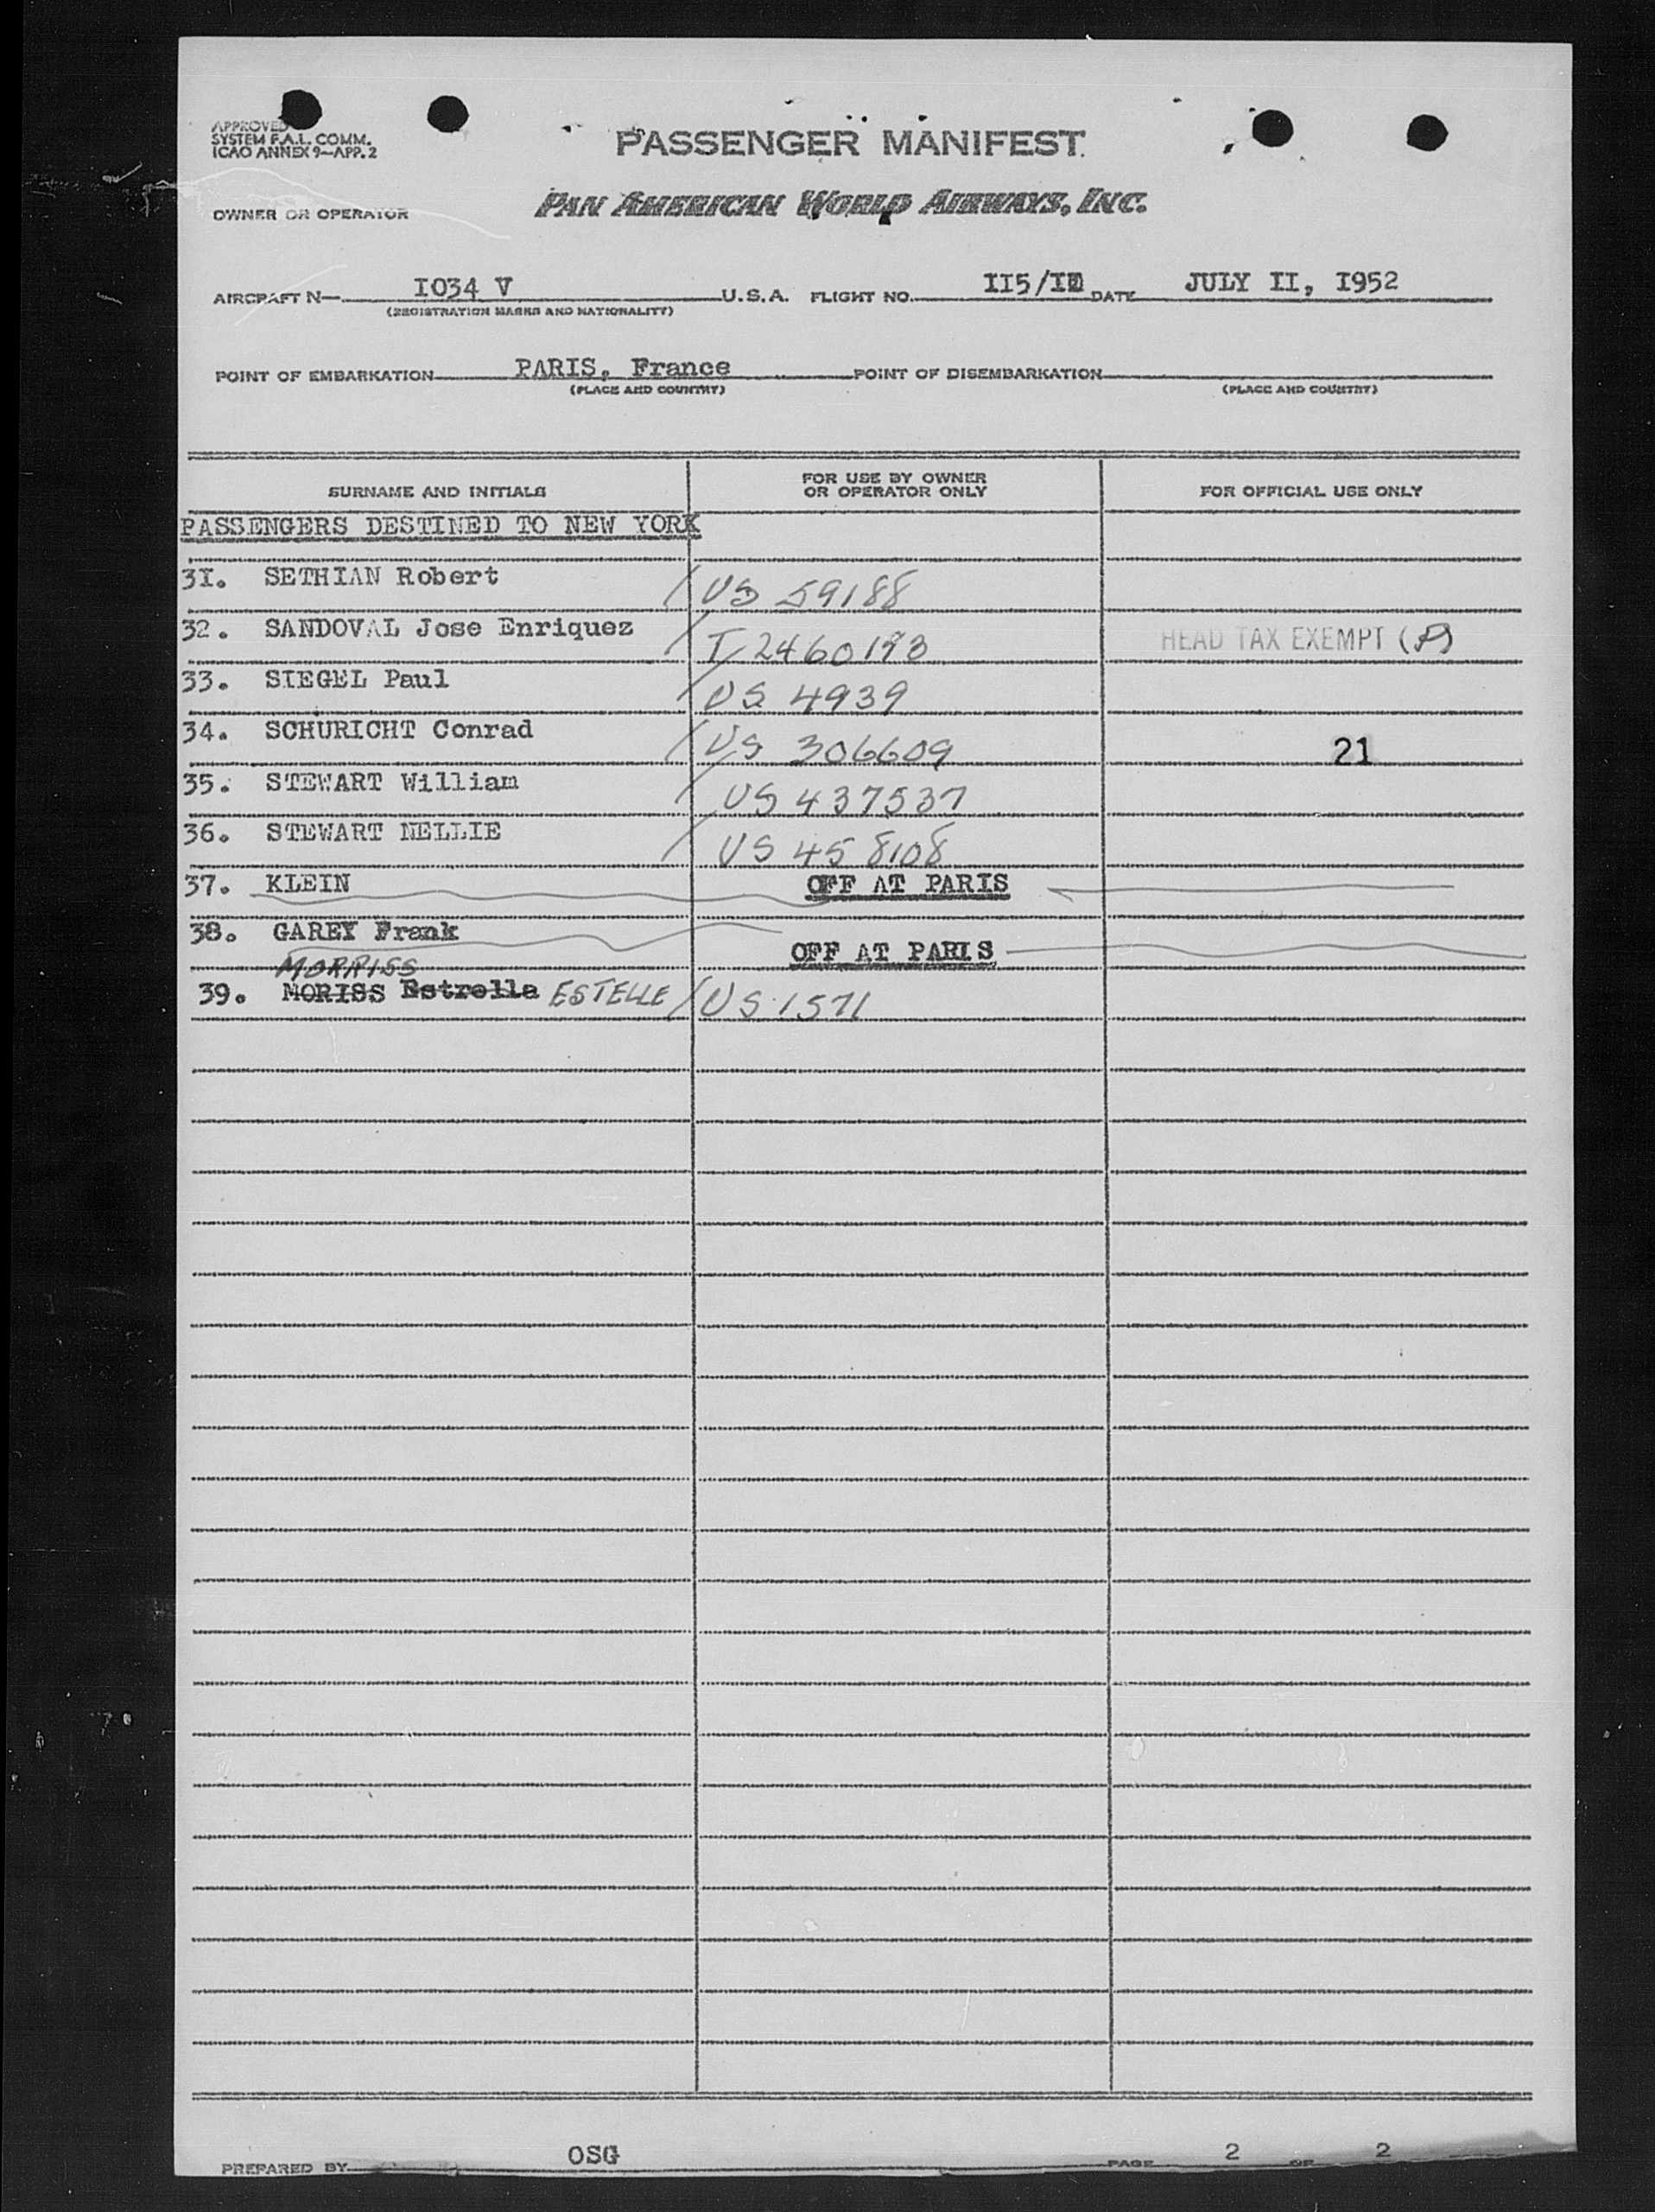 APPROVED
SYSTEM F.A.L. COMM.
ICAO ANNEX 9—APP. 2
PASSENGER MANIFEST
OWNER OR OPERATOR PAN AMERICAN WORLD AIRWAYS, INC.
AIRCRAFT N— I034 V U.S.A. FLIGHT NO. II5/ DATE JULY II, I952
(REGISTRATION MARKS AND NATIONALITY)
POINT OF EMBARKATION PARIS, France POINT OF DISEMBARKATION
(PLACE AND COUNTRY) (PLACE AND COUNTRY)
SURNAME AND INITIALS FOR USE BY OWNER OR OPERATOR ONLY FOR OFFICIAL USE ONLY
PASSENGERS DESTINED TO NEW YORK
3I. SETHIAN Robert / US 59188
32. SANDOVAL Jose Enriquez / T 2460193 HEAD TAX EXEMPT (P)
33. SIEGEL Paul / US 4939
34. SCHURICHT Conrad / US 306609 21
35. STEWART William / US 437537
36. STEWART NELLIE / US 458108
37. KLEIN OFF AT PARIS
38. GAREY Frank OFF AT PARIS
MORRISS
39. MORISS Estrella ESTELLE / US 1571
PREPARED BY OSG PAGE 2 OF 2